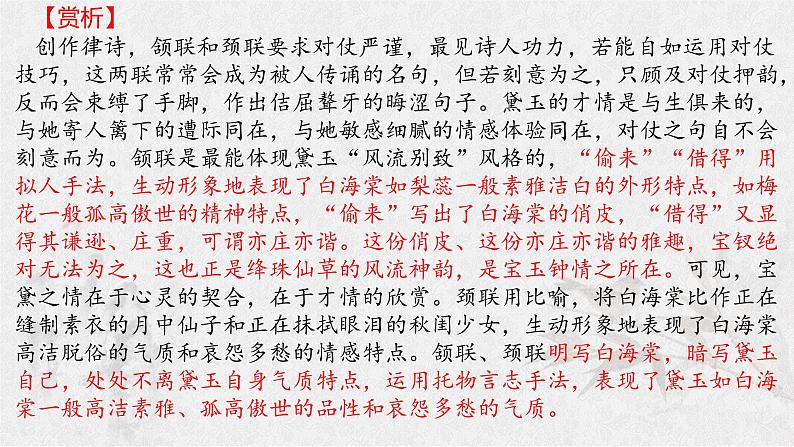 【赏析】
创作律诗，颔联和颈联要求对仗严谨，最见诗人功力，若能自如运用对仗
技巧，这两联常常会成为被人传诵的名句，但若刻意为之，只顾及对仗押韵，
反而会束缚了手脚，作出佶屈聱牙的晦涩句子。黛玉的才情是与生俱来的，
与她寄人篱下的遭际同在，与她敏感细腻的情感体验同在，对仗之句自不会
刻意而为。颔联是最能体现黛玉“风流别致”风格的，“偷来”“借得”用
拟人手法，生动形象地表现了白海棠如梨蕊一般素雅洁白的外形特点，如梅
花一般孤高傲世的精神特点，“偷来”写出了白海棠的俏皮，“借得”又显
得其谦逊、庄重，可谓亦庄亦谐。这份俏皮、这份亦庄亦谐的雅趣，宝钗绝
对无法为之，这也正是绛珠仙草的风流神韵，是宝玉钟情之所在。可见，宝
黛之情在于心灵的契合，在于才情的欣赏。颈联用比喻，将白海棠比作正在
缝制素衣的月中仙子和正在抹拭眼泪的秋闺少女，生动形象地表现了白海棠
高洁脱俗的气质和哀怨多愁的情感特点。颔联、颈联明写白海棠，暗写黛玉
自己，处处不离黛玉自身气质特点，运用托物言志手法，表现了黛玉如白海
棠一般高洁素雅、孤高傲世的品性和哀怨多愁的气质。